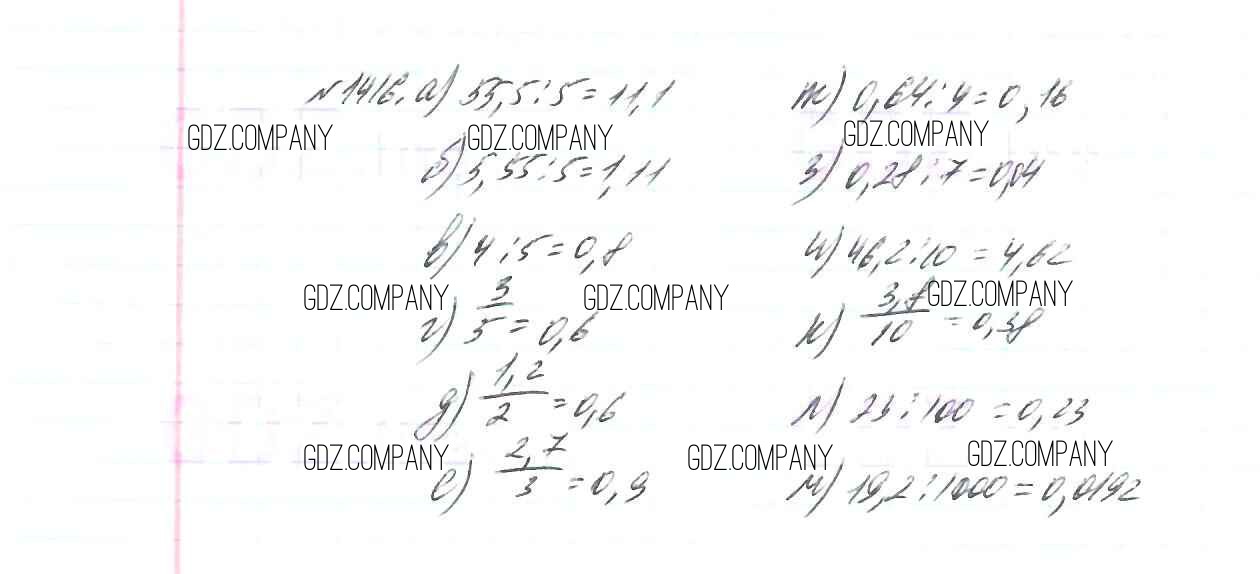 №1416. а) 55,5:5=11,1
б) 5,55:5=1,11
в) 4:5=0,8
г) 3/5=0,6
д) 1,2/2=0,6
е) 2,7/3=0,9
ж) 0,64:4=0,16
з) 0,28:7=0,04
и) 46,2:10=4,62
к) 3,8/10=0,38
л) 23:100=0,23
м) 19,2:1000=0,0192
GDZ.COMPANY
GDZ.COMPANY
GDZ.COMPANY
GDZ.COMPANY
GDZ.COMPANY
GDZ.COMPANY
GDZ.COMPANY
GDZ.COMPANY
GDZ.COMPANY